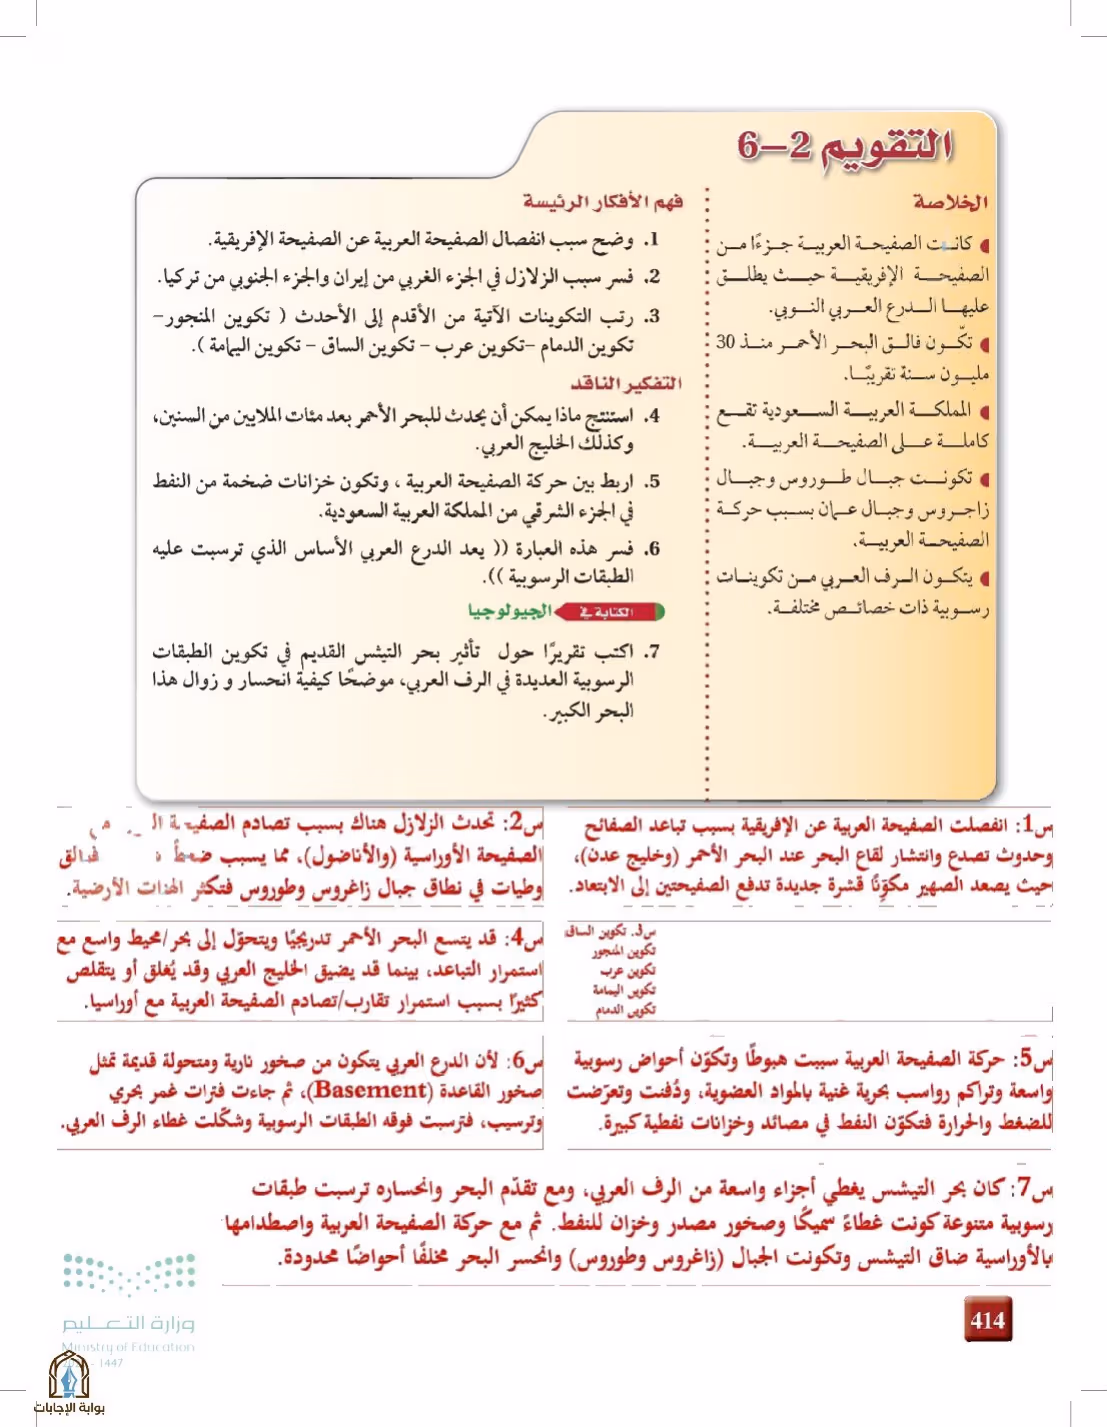 التقويم 2–6
الخلاصة
كانت الصفيحة العربية جزءًا من
الصفيحة الإفريقية حيث يطلق
عليها الدرع العربي النوبي.
تكّون فالق البحر الأحمر منذ 30
مليون سنة تقريبًا.
المملكة العربية السعودية تقع
كاملة على الصفيحة العربية.
تكونت جبال طوروس وجبال
زاجروس وجبال عمان بسبب حركة
الصفيحة العربية.
يتكون الرف العربي من تكوينات
رسوبية ذات خصائص مختلفة.
فهم الأفكار الرئيسة
1. وضح سبب انفصال الصفيحة العربية عن الصفيحة الإفريقية.
2. فسر سبب الزلازل في الجزء الغربي من إيران والجزء الجنوبي من تركيا.
3. رتب التكوينات الآتية من الأقدم إلى الأحدث ( تكوين المنجور–
تكوين الدمام –تكوين عرب – تكوين الساق – تكوين اليمامة ).
التفكير الناقد
4. استنتج ماذا يمكن أن يحدث للبحر الأحمر بعد مئات الملايين من السنين،
وكذلك الخليج العربي.
5. اربط بين حركة الصفيحة العربية ، وتكون خزانات ضخمة من النفط
في الجزء الشرقي من المملكة العربية السعودية.
6. فسر هذه العبارة (( يعد الدرع العربي الأساس الذي ترسبت عليه
الطبقات الرسوبية )).
الكتابة في الجيولوجيا
7. اكتب تقريرًا حول تأثير بحر التيثس القديم في تكوين الطبقات
الرسوبية العديدة في الرف العربي، موضحًا كيفية انحسار و زوال هذا
البحر الكبير.
س1: انفصلت الصفيحة العربية عن الإفريقية بسبب تباعد الصفائح
وحدوث تصدع وانتشار لقاع البحر عند البحر الأحمر (وخليج عدن)،
حيث يصعد الصهير مكوّنًا قشرة جديدة تدفع الصفيحتين إلى الابتعاد.
س2: تحدث الزلازل هناك بسبب تصادم الصفيحة
الصفيحة الأوراسية (والأناضول)، مما يسبب ضغطً
وطيات في نطاق جبال زاغروس وطوروس فتكثر الهزات الأرضية.
س3. تكوين الساق
تكوين المنجور
تكوين عرب
تكوين اليمامة
تكوين الدمام
س4: قد يتسع البحر الأحمر تدريجيًا ويتحوّل إلى بحر/محيط واسع مع
استمرار التباعد، بينما قد يضيق الخليج العربي وقد يُغلق أو يتقلص
كثيرًا بسبب استمرار تقارب/تصادم الصفيحة العربية مع أوراسيا.
س5: حركة الصفيحة العربية سببت هبوطًا وتكوّن أحواض رسوبية
واسعة وتراكم رواسب بحرية غنية بالمواد العضوية، ودُفنت وتعرّضت
للضغط والحرارة فتكوّن النفط في مصائد وخزانات نفطية كبيرة.
س6: لأن الدرع العربي يتكون من صخور نارية ومتحولة قديمة تمثل
صخور القاعدة (Basement)، ثم جاءت فترات غمر بحري
وترسيب، فترسبت فوقه الطبقات الرسوبية وشكّلت غطاء الرف العربي.
س7: كان بحر التيشس يغطي أجزاء واسعة من الرف العربي، ومع تقدّم البحر وانحساره ترسبت طبقات
رسوبية متنوعة كونت غطاءً سميكًا وصخور مصدر وخزان للنفط. ثم مع حركة الصفيحة العربية واصطدامها
بالأوراسية ضاق التيشس وتكونت الجبال (زاغروس وطوروس) وانحسر البحر مخلفًا أحواضًا محدودة.
وزارة التعليم
Ministry of Education
- 1447
414
بوابة الإجابات